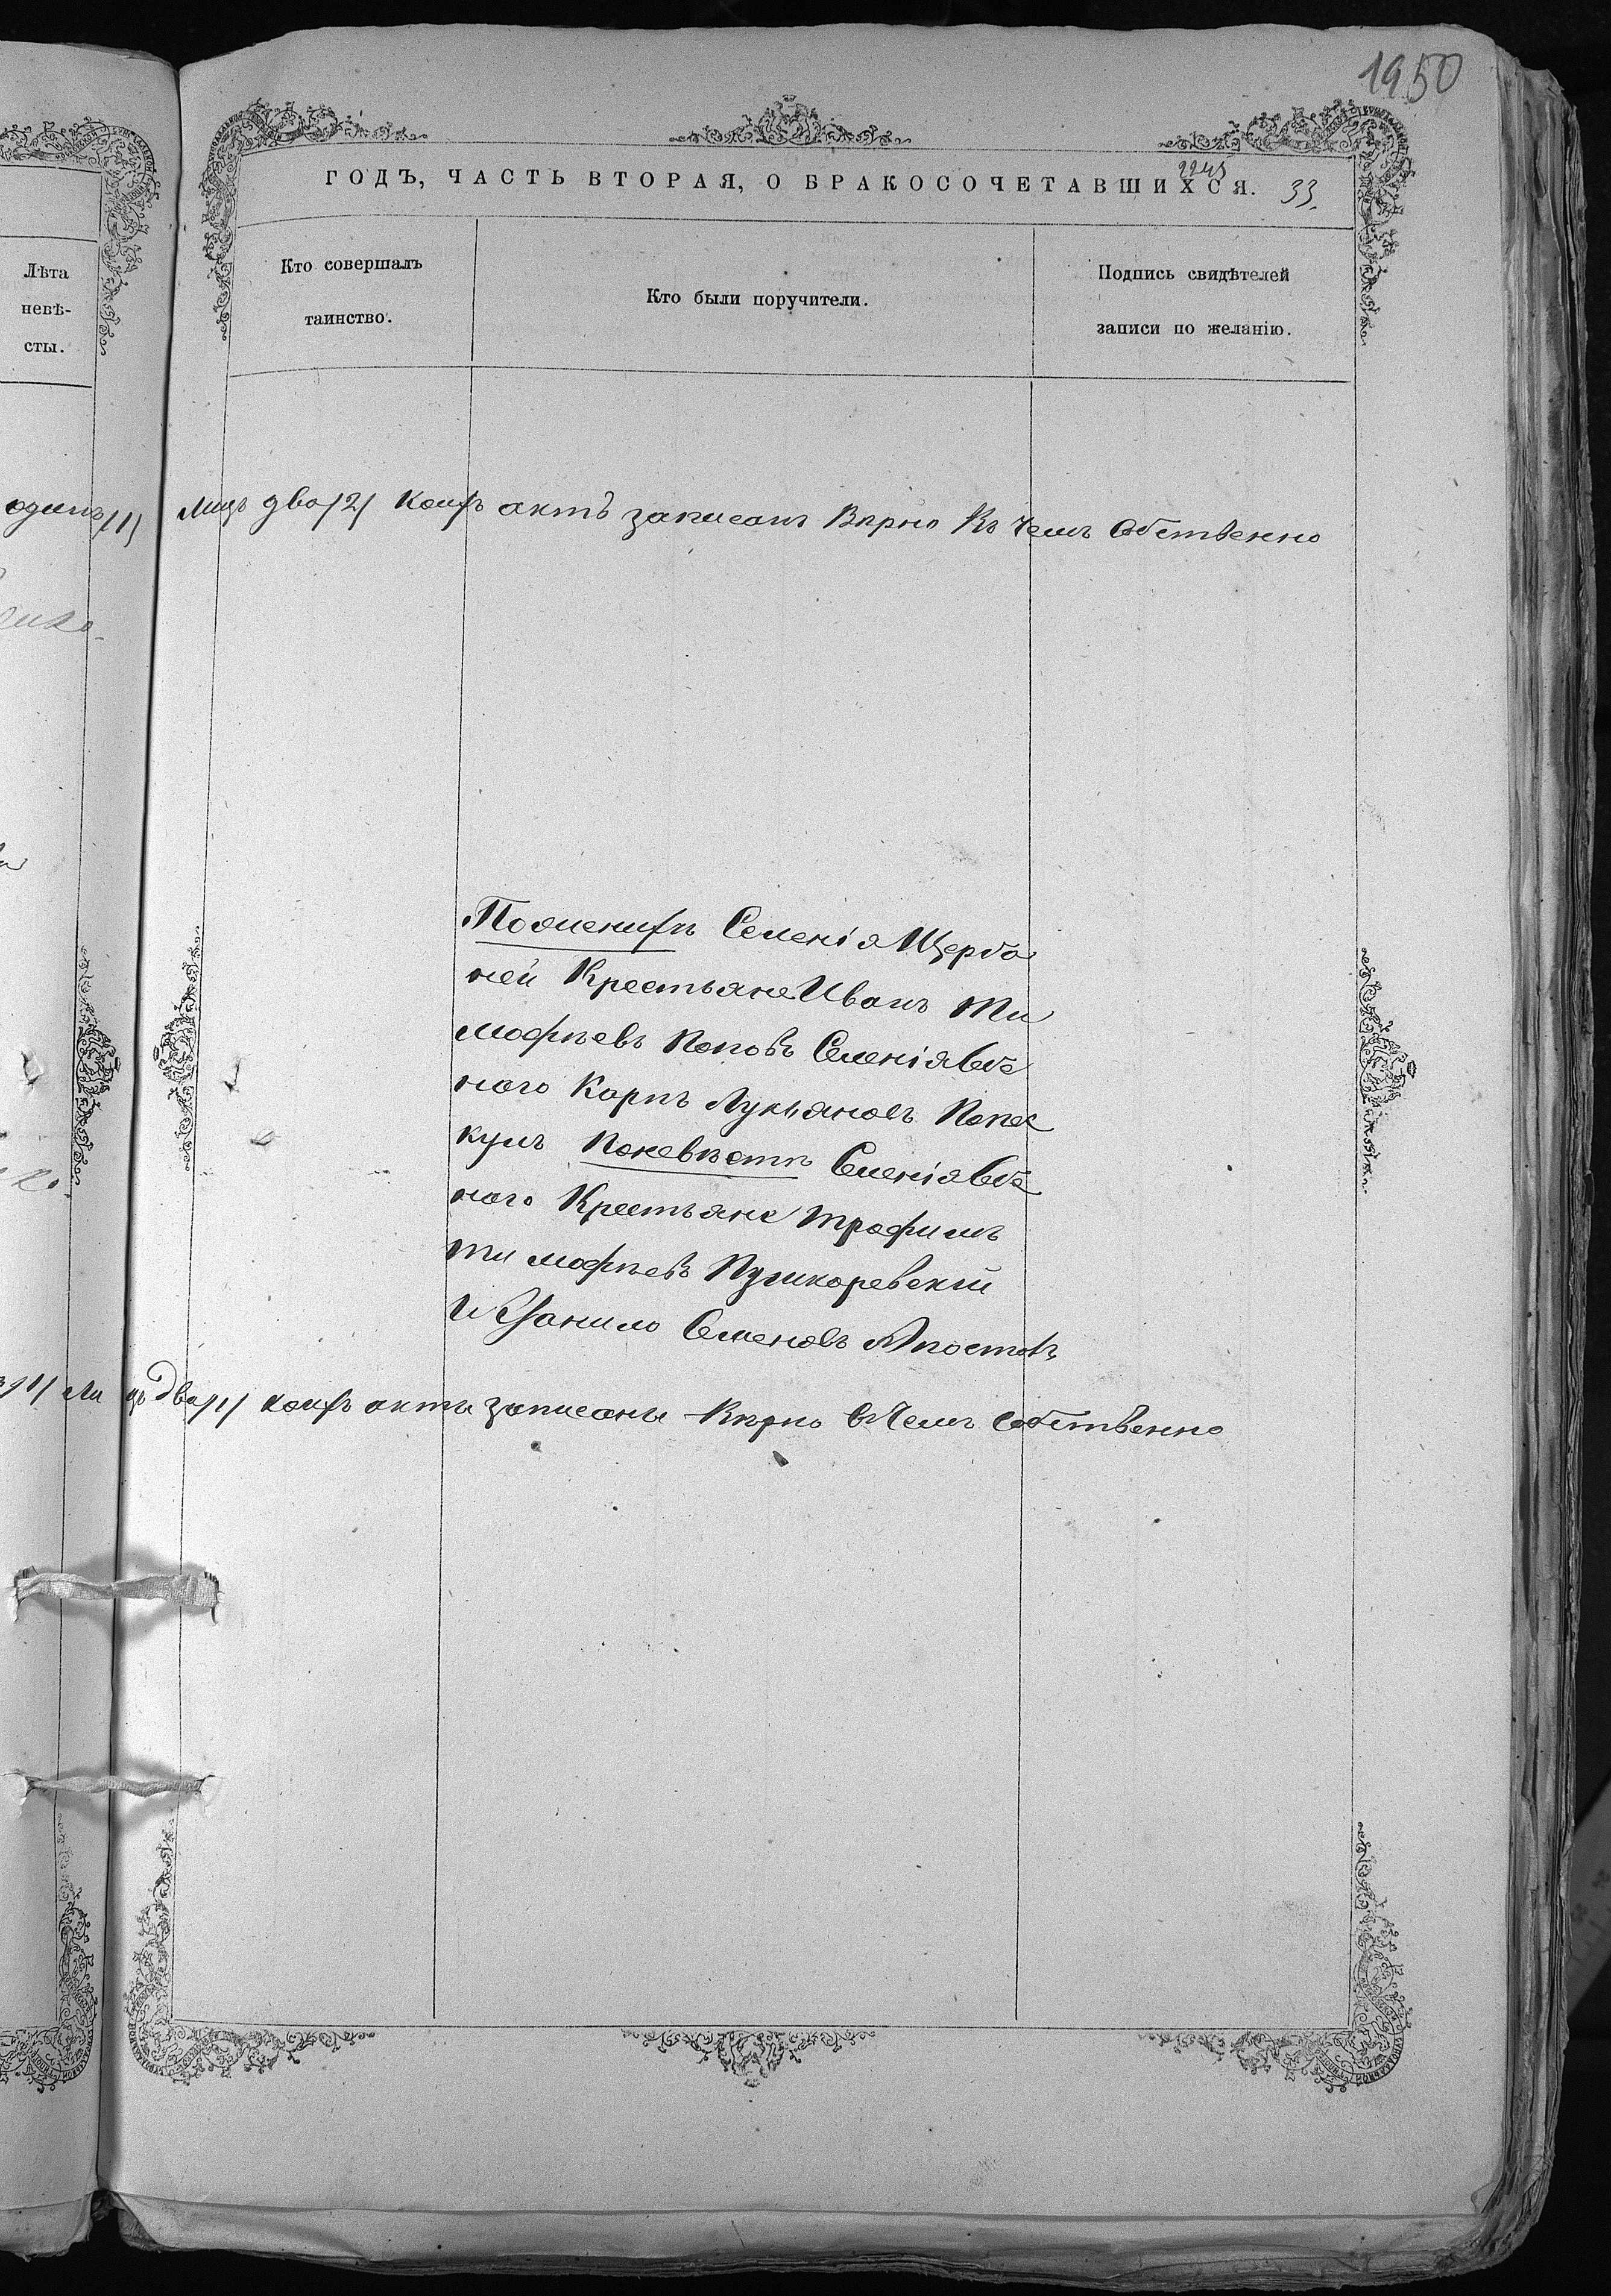 1950
ГОДЪ, ЧАСТЬ ВТОРАЯ, О БРАКОСОЧЕТАВШИХСЯ. 33.
2245
Лѣта
невѣ-
сты.
Кто совершалъ
таинство.
Кто были поручители.
Подпись свидѣтелей
записи по желанію.
одинъ /1/ лицъ два /2/ коихъ актъ записанъ Вѣрно Въ чемъ Собственно
По женихѣ Селенія Щерба
ней Крестьяне Иванъ Ти
мофѣевъ Поповъ Селенія
ного Карпъ Лукьяновъ Попес
кулъ По невѣстѣ Селенія
ного Крестьяне Трофимъ
Тимофѣевъ Пушкаревскій
И Данило Семеновъ Апостолъ
/1/ Лицъ два /2/ коихъ акты записаны Вѣрно в Чемъ Собственно